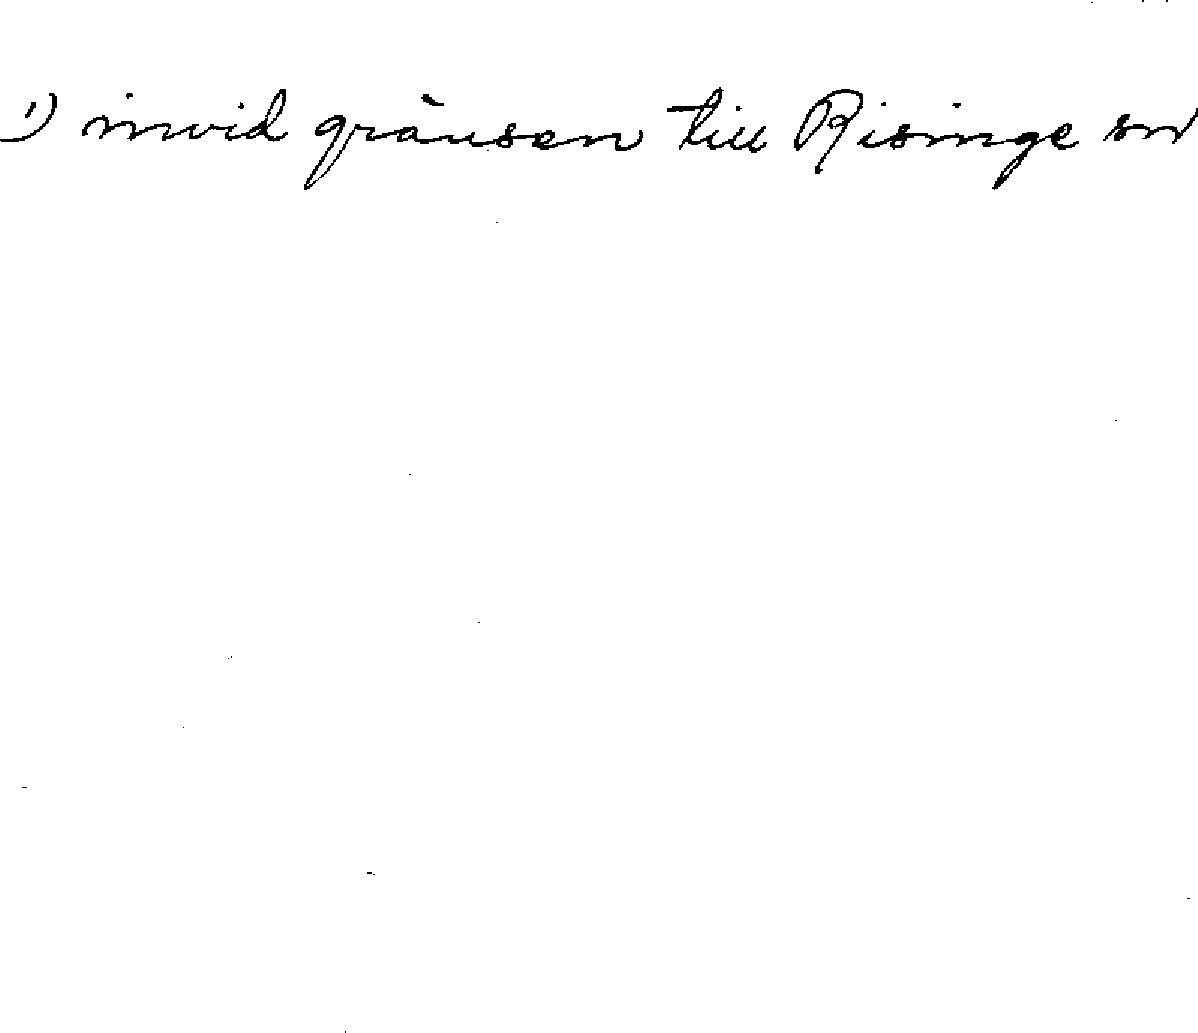 1) invid gränsen till Risinge sn